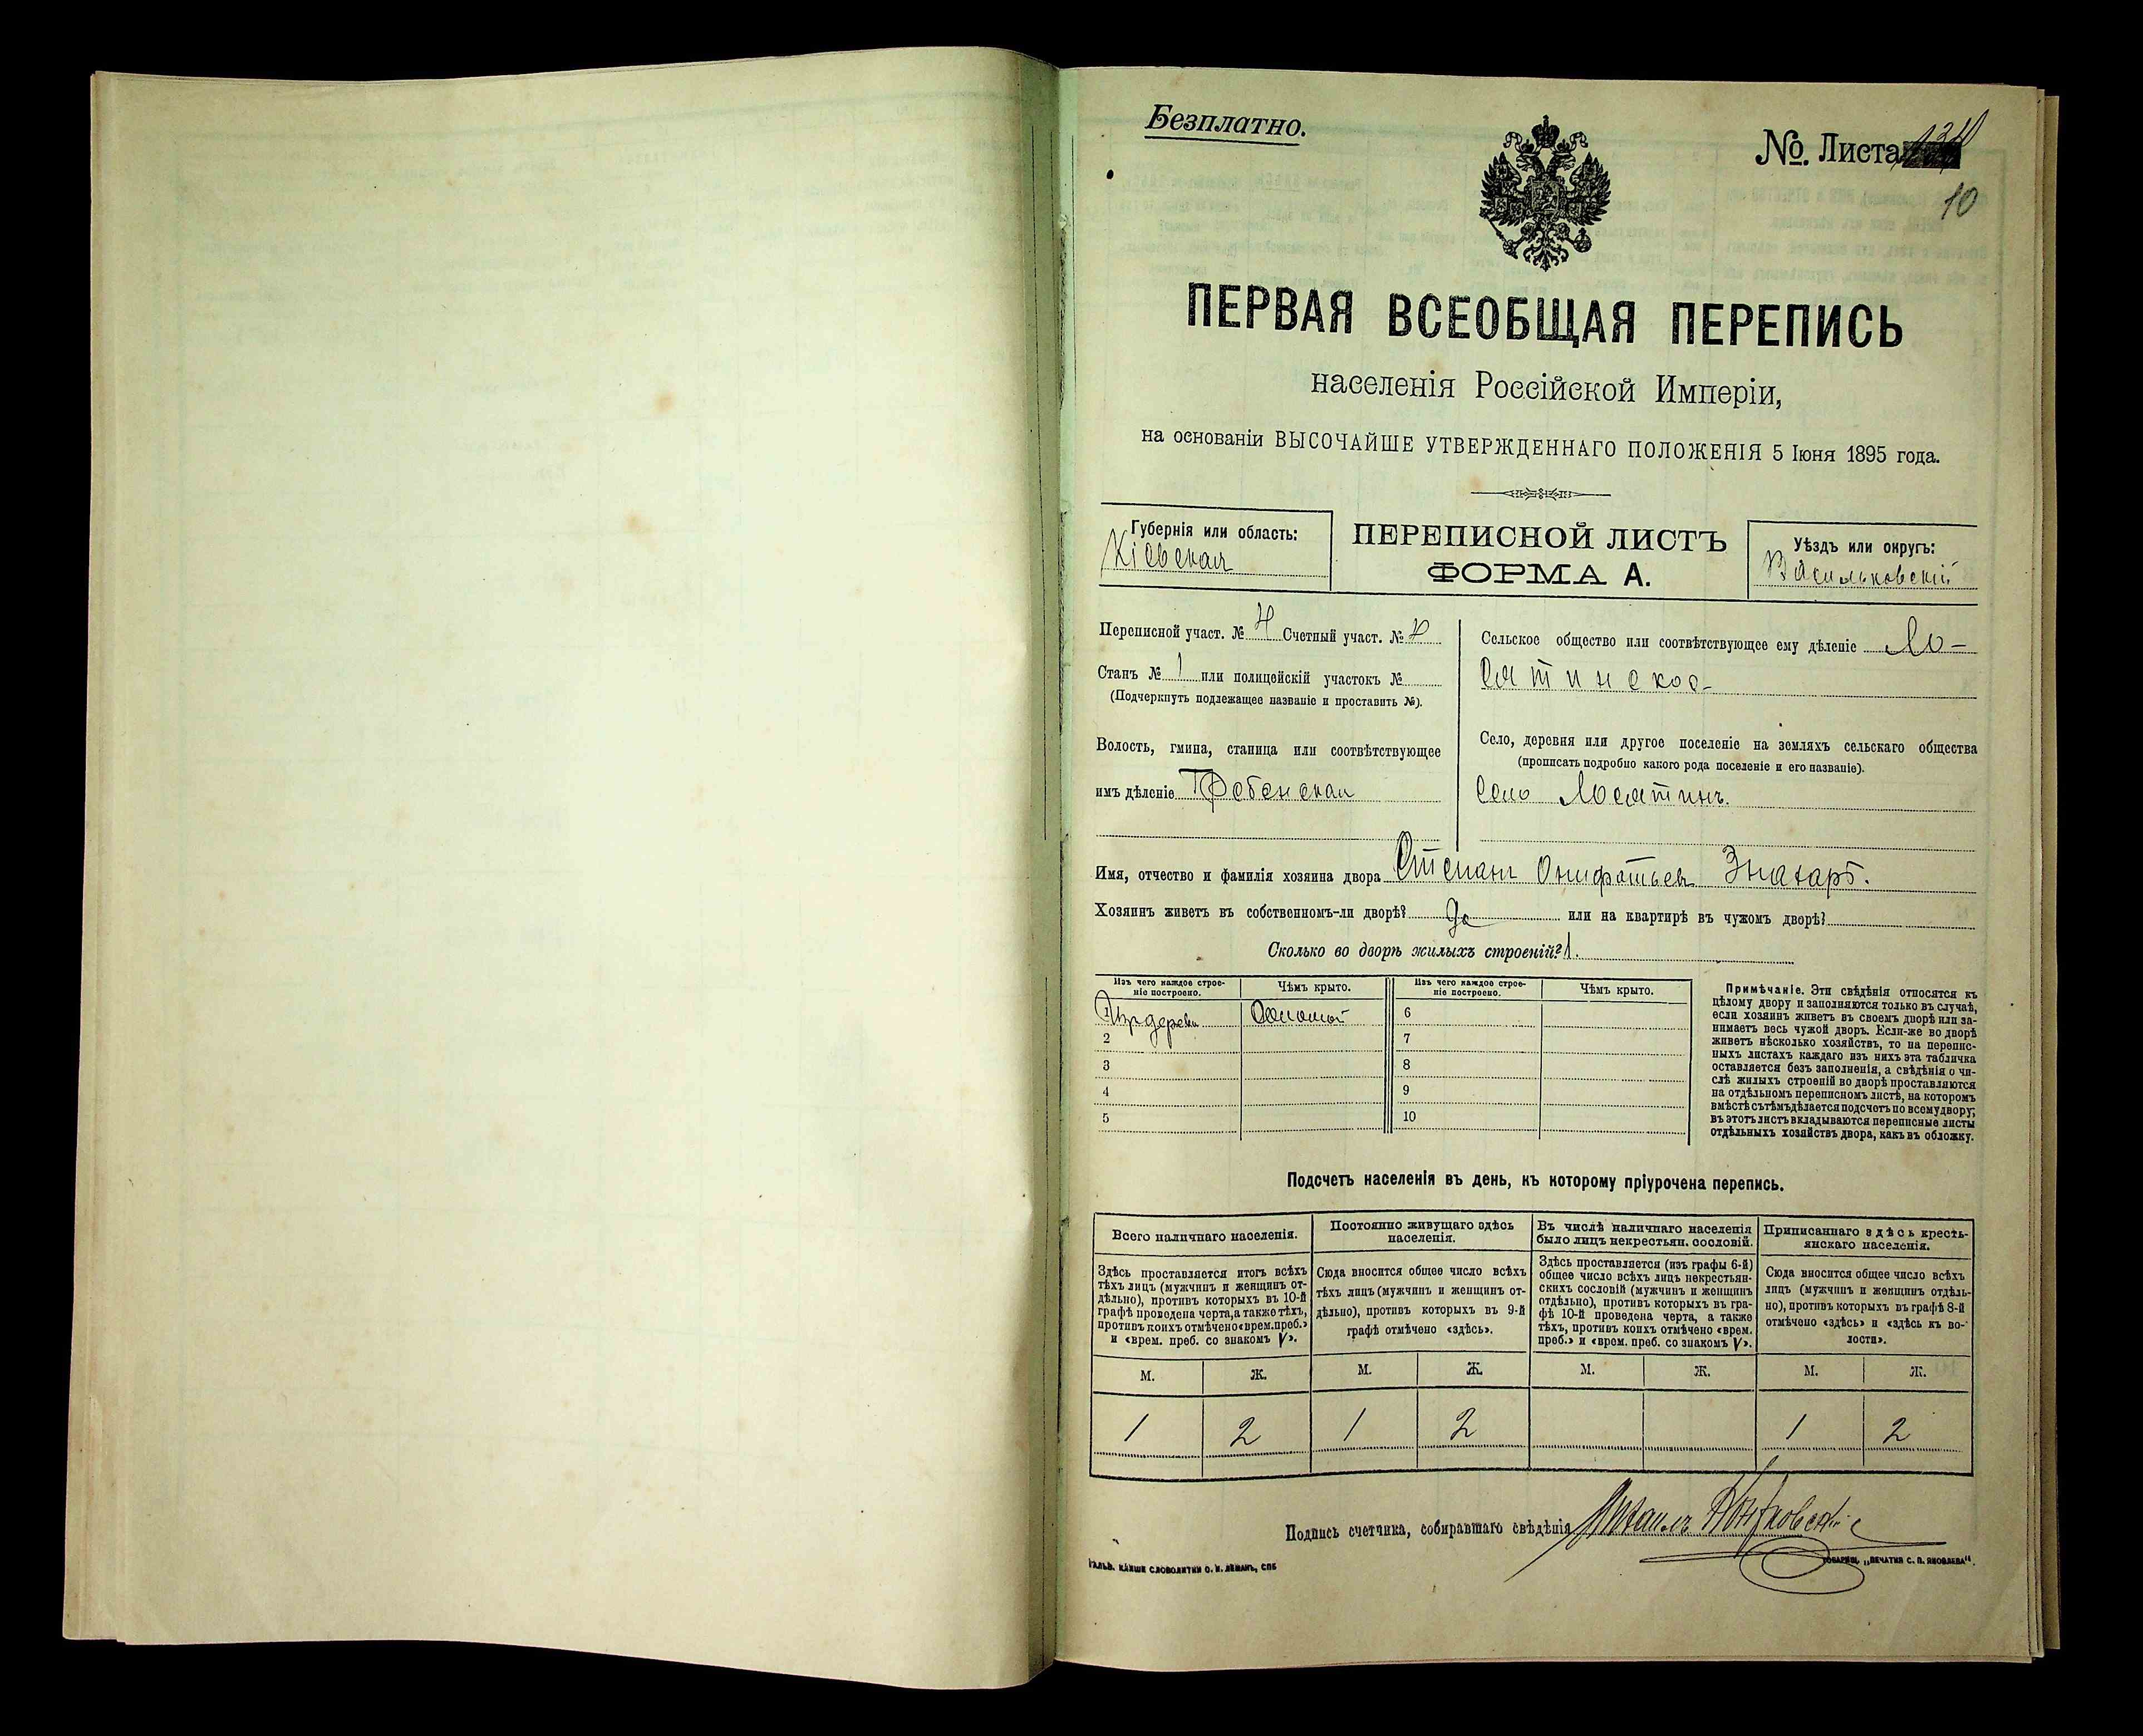 Безплатно.
№. Листа
10
ПЕРВАЯ ВСЕОБЩАЯ ПЕРЕПИСЬ
населенія Россійской Имперіи,
на основаніи ВЫСОЧАЙШЕ УТВЕРЖДЕННАГО ПОЛОЖЕНІЯ 5 Іюня 1895 года.
Губернія или область:
Кіевская
ПЕРЕПИСНОЙ ЛИСТЪ
ФОРМА А.
Уѣздъ или округъ:
Васильковскій
Переписной участ. № 4 Счетный участ. №
Станъ № 1 или полицейскій участокъ №
(Подчеркнуть подлежащее названіе и проставить №).
Волость, гмина, станица или соотвѣтствующее
имъ дѣленіе
Сельское общество или соотвѣтствующее ему дѣленіе Ло-
сятинское
Село, деревня или другое поселеніе на земляхъ сельскаго общества
(прописать подробно какого рода поселеніе и его названіе).
Село Лосятинъ.
Имя, отчество и фамилія хозяина двора Степанъ Онифатьев Знахарь.
Хозяинъ живетъ въ собственномъ-ли дворѣ? Да или на квартирѣ въ чужомъ дворѣ?
Сколько во дворѣ жилыхъ строеній? 1.
Изъ чего каждое строе-
ніе построено.
Чѣмъ крыто.
Изъ чего каждое строе-
ніе построено.
Чѣмъ крыто.
1 Изъ дерева Соломой 6
2 7
3 8
4 9
5 10
Примѣчаніе. Эти свѣдѣнія относятся къ
цѣлому двору и заполняются только въ случаѣ,
если хозяинъ живетъ въ своемъ дворѣ или за-
нимаетъ весь чужой дворъ. Если-же во дворѣ
живетъ нѣсколько хозяйствъ, то на перепис-
ныхъ листахъ каждаго изъ нихъ эта табличка
оставляется безъ заполненія, а свѣдѣнія о чи-
слѣ жилыхъ строеній во дворѣ проставляются
на отдѣльномъ переписномъ листѣ, на которомъ
вмѣстѣ съ тѣмъ дѣлается подсчетъ по всему двору;
въ этотъ листъ вкладываются переписные листы
отдѣльныхъ хозяйствъ двора, какъ въ обложку.
Подсчетъ населенія въ день, къ которому пріурочена перепись.
Всего наличнаго населенія.
Здѣсь проставляется итогъ всѣхъ
тѣхъ лицъ (мужчинъ и женщинъ от-
дѣльно), противъ которыхъ въ 10-й
графѣ проведена черта, а также тѣхъ,
противъ коихъ отмѣчено «врем. преб.»
и «врем. преб. со знакомъ V».
Постоянно живущаго здѣсь
населенія.
Сюда вносится общее число всѣхъ
тѣхъ лицъ (мужчинъ и женщинъ от-
дѣльно), противъ которыхъ въ 9-й
графѣ отмѣчено «здѣсь».
Въ числѣ наличнаго населенія
было лицъ некрестьян. сословій.
Здѣсь проставляется (изъ графы 6-й)
общее число всѣхъ лицъ некрестьян-
скихъ сословій (мужчинъ и женщинъ
отдѣльно), противъ которыхъ въ гра-
фѣ 10-й проведена черта, а также
тѣхъ, противъ коихъ отмѣчено «врем.
преб.» и «врем. преб. со знакомъ V».
Приписаннаго здѣсь кресть-
янскаго населенія.
Сюда вносится общее число всѣхъ
лицъ (мужчинъ и женщинъ отдѣль-
но), противъ которыхъ въ графѣ 8-й
отмѣчено «здѣсь» и «здѣсь къ во-
лости».
М. Ж. М. Ж. М. Ж. М. Ж.
1 2 1 2 1 2
Подпись счетчика, собиравшаго свѣдѣнія Михаилъ
ГАЛЬВ. КЛИШЕ СЛОВОЛИТНИ О. И. ЛЕМАНЪ, СПБ
ТОВАРИЩ. „ПЕЧАТНЯ С. П. ЯКОВЛЕВА".